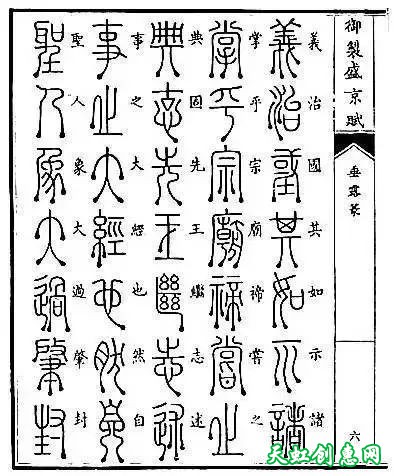 御製盛京賦
垂露篆
六
義治國其如示諸
掌乎宗廟禘嘗之
典固先王繼志述
事之大經也然自
聖人象大過肇封
天虹创意网